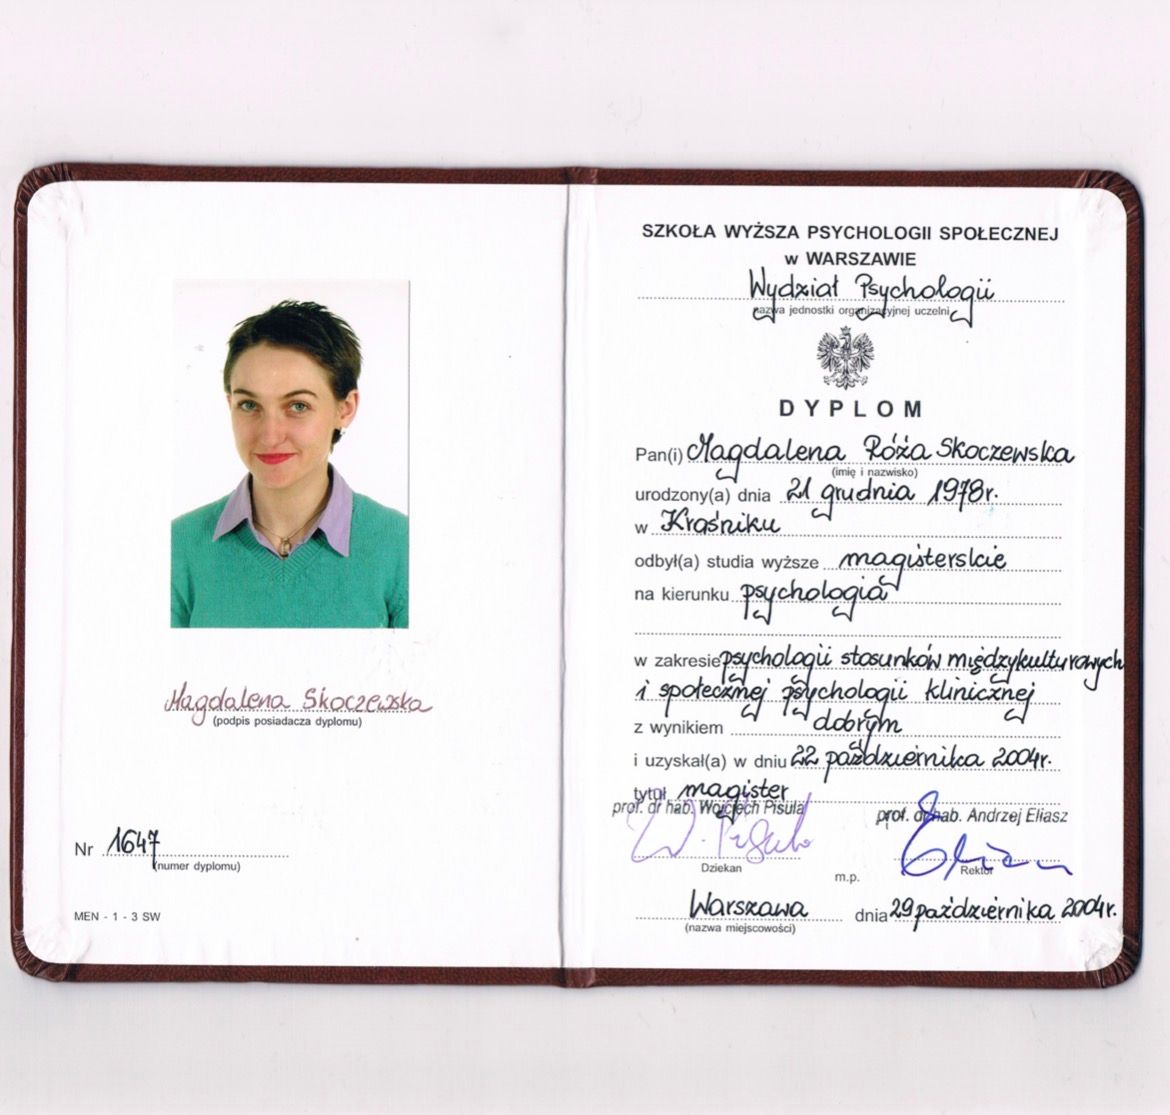 Magdalena Skoczewska
(podpis posiadacza dyplomu)
Nr 1647
(numer dyplomu)
MEN - 1 - 3 SW
SZKOŁA WYŻSZA PSYCHOLOGII SPOŁECZNEJ
w WARSZAWIE
Wydział Psychologii
nazwa jednostki organizacyjnej uczelni
DYPLOM
Pan(i) Magdalena Róża Skoczewska
(imię i nazwisko)
urodzony(a) dnia 21 grudnia 1978r.
w Kraśniku
odbył(a) studia wyższe magisterskie
na kierunku psychologia
w zakresie psychologii stosunków międzykulturowych
i społecznej psychologii klinicznej
z wynikiem dobrym
i uzyskał(a) w dniu 22 października 2004r.
tytuł magister
prof. dr hab. Wojciech Pisula prof. dr hab. Andrzej Eliasz
W. Pisula Eliasz
Dziekan m.p. Rektor
Warszawa dnia 29 października 2004r.
(nazwa miejscowości)